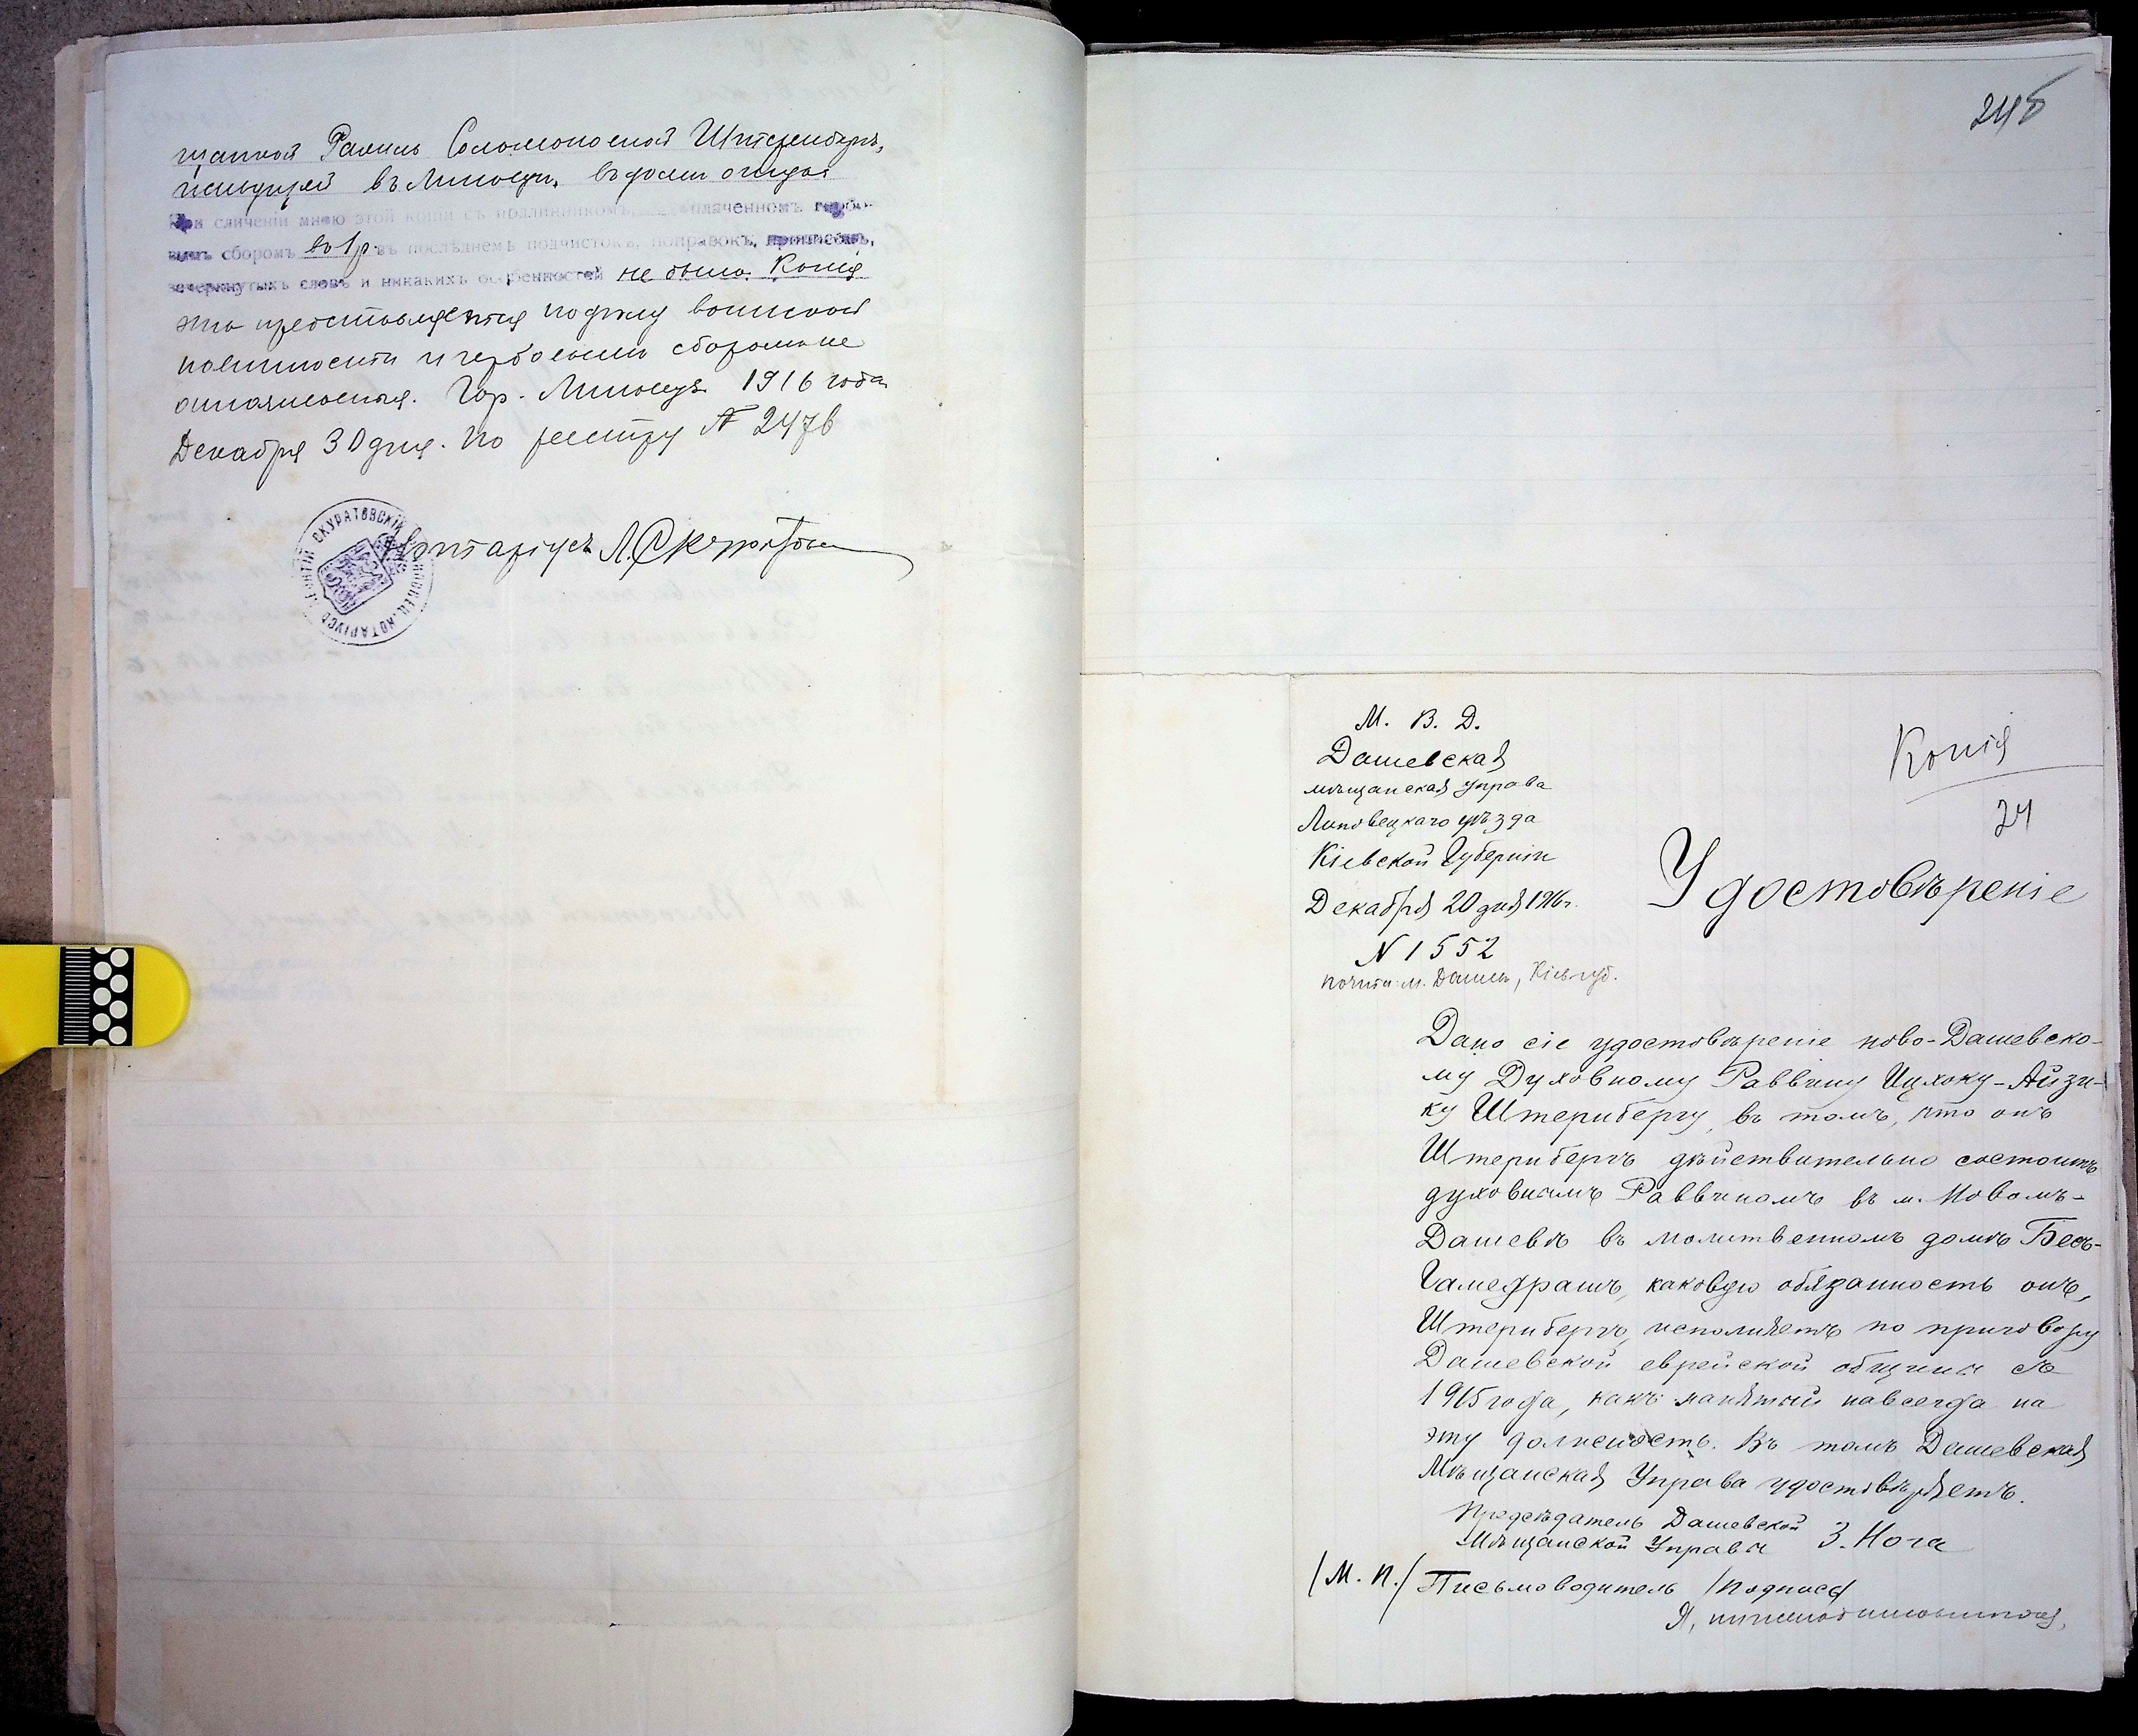 щанкой Рахиль Соломоновной Штернбергъ,
живущей въ Липовцѣ, въ домѣ отца
При сличеніи мною этой копіи съ подлинникомъ, оплаченномъ гербо-
вымъ сборомъ въ 1 р. въ послѣднемъ подчистокъ, поправокъ, приписокъ,
зачеркнутыхъ словъ и никакихъ особенностей не было. Копія
эта представляется по дѣлу воинской
повинности и гербовымъ сборомъ не
оплачивается. Гор. Липовецъ 1916 года
Декабря 30 дня. По реестру № 2476
Нотаріусъ Л. Скуратовскій
СКУРАТОВСКІЙ ЛИПОВЕЦ. НОТАРІУСЪ
24б
М. В. Д.
Дашевская
мѣщанская управа
Липовецкаго уѣзда
Кіевской Губерніи
Декабря 20 дня 1916 г.
N 1552
почта м. Дашев, Кіев. губ.
Копія
24
Удостовѣреніе
Дано сіе удостовѣреніе ново-Дашевско-
му Духовному Раввину Ицхоку-Айзи-
ку Штернбергу, въ томъ, что онъ
Штернбергъ дѣйствительно состоитъ
духовнымъ Раввиномъ въ м. Новомъ-
Дашевѣ въ молитвенномъ домѣ Бесъ-
Гамедрашъ, каковую обязанность онъ,
Штернбергъ, исполняетъ по приговору
Дашевской еврейской общины съ
1915 года, какъ нанятый навсегда на
эту должность. Въ томъ Дашевская
Мѣщанская Управа удостовѣряетъ.
Предсѣдатель Дашевской
Мѣщанской Управы З. Нога
/М. П./ Письмоводитель /подпись/
Я, нижеподписавшійся,